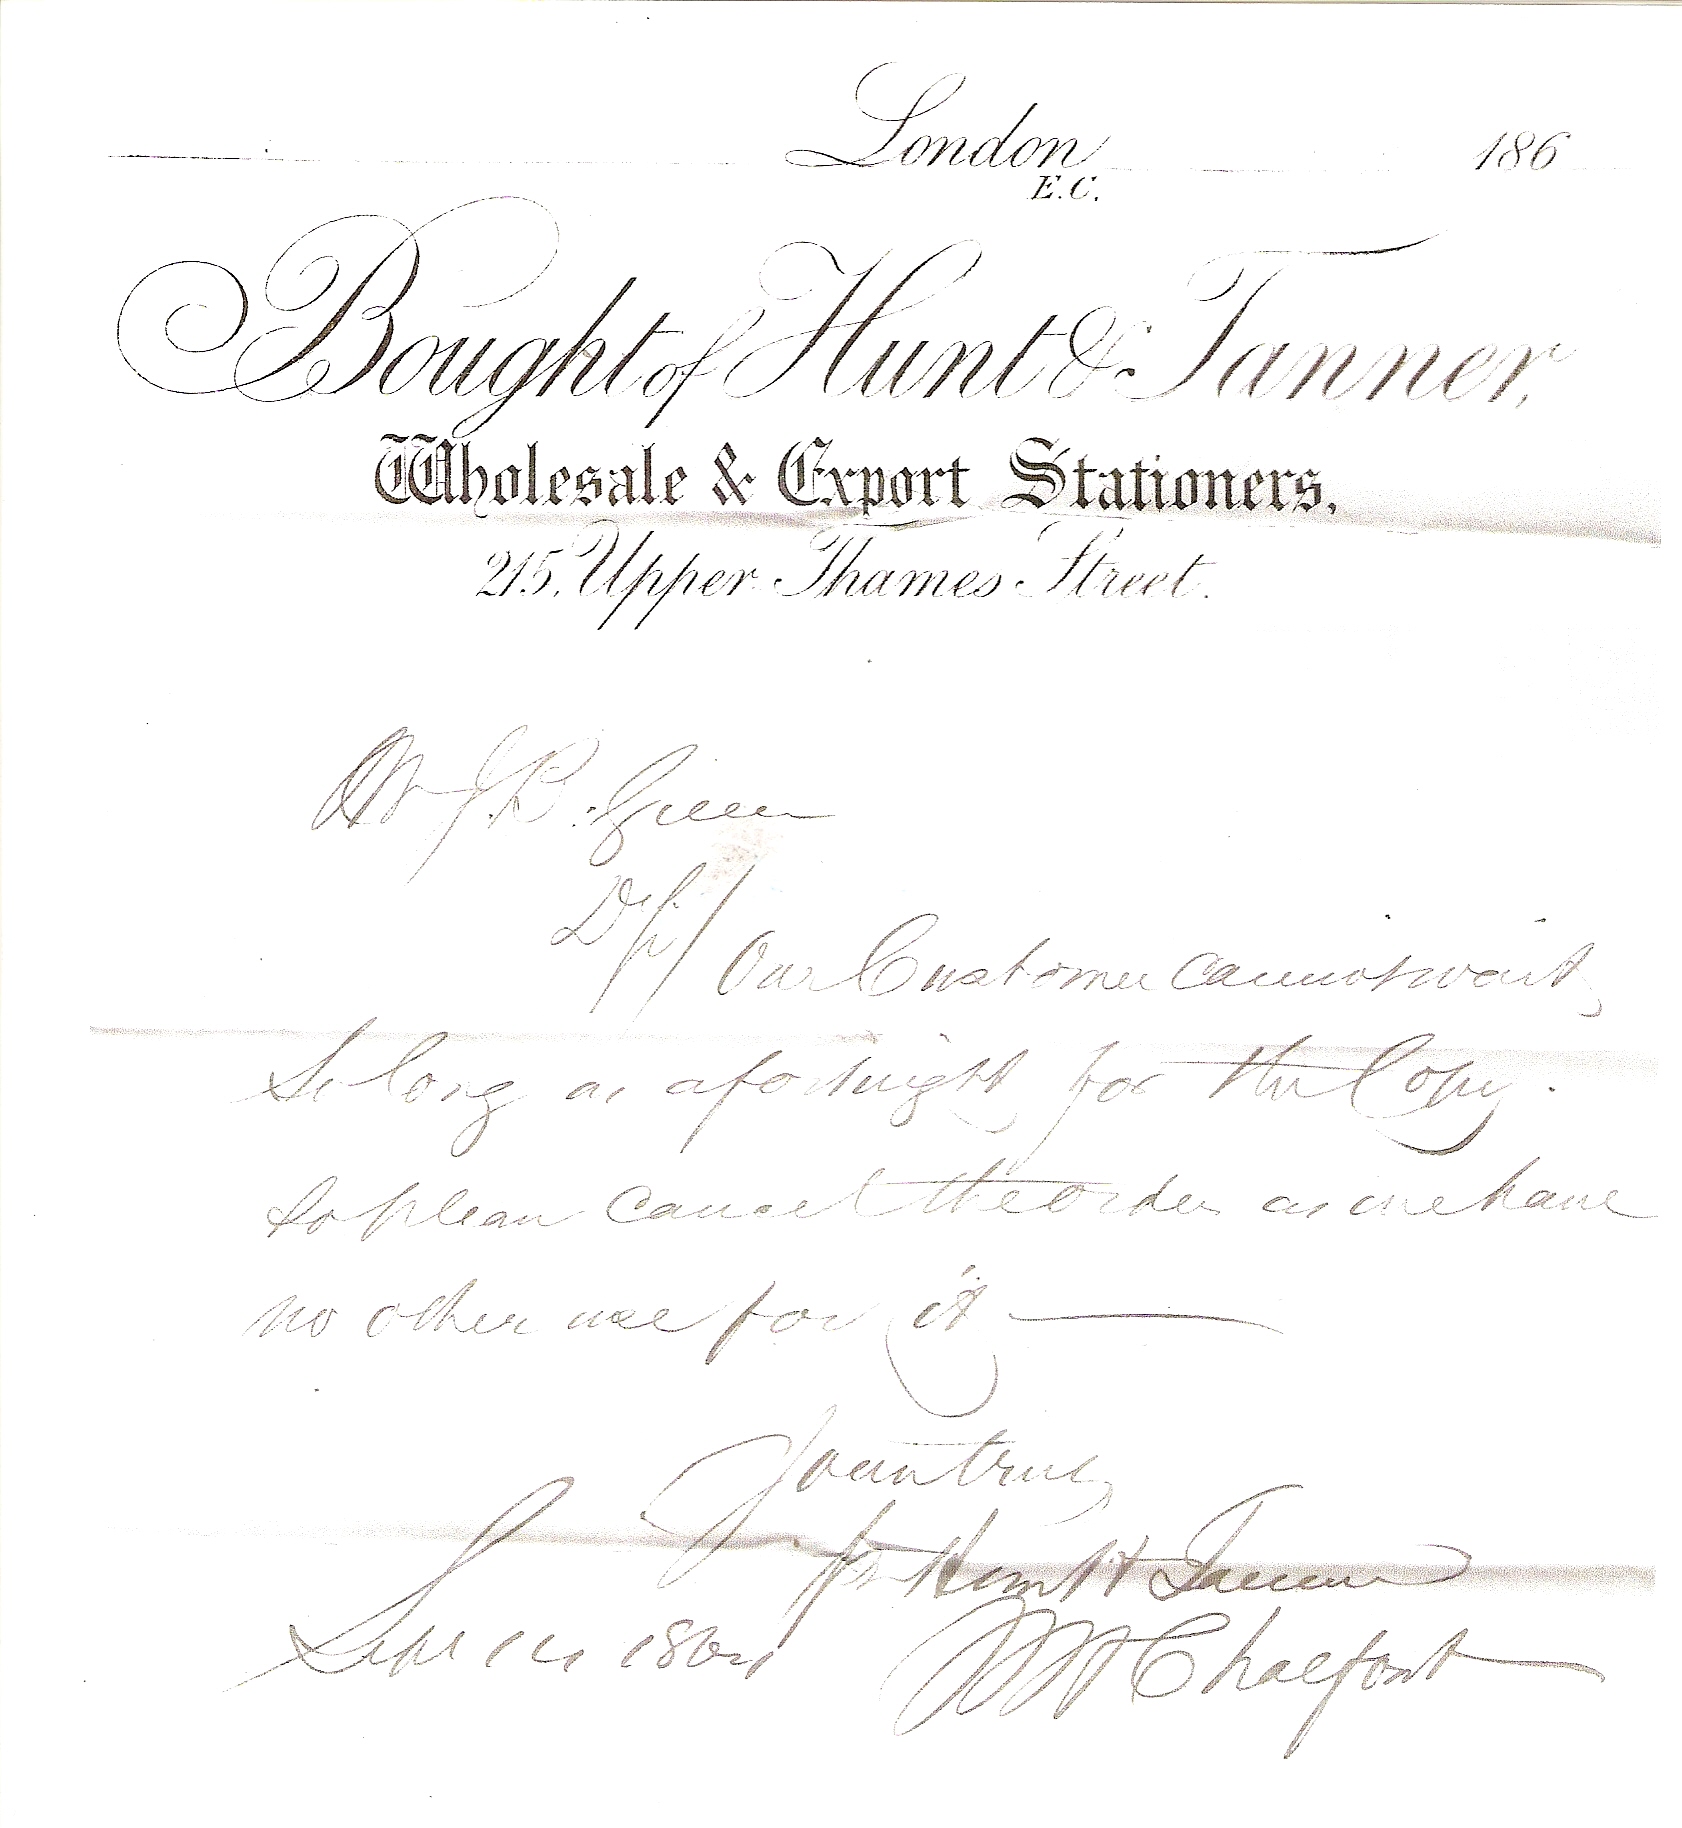 London 186
E.C.
Bought of Hunt & Tanner,
Wholesale & Export Stationers,
215, Upper Thames Street.
Mr J. B. Green
D Sir / Our Customer cannot wait
so long as a fortnight for the Copy.
so please cancel the order as we have
no other use for it —
Yours truly
for Hunt & Tanner
Sept 186
W Chalfont